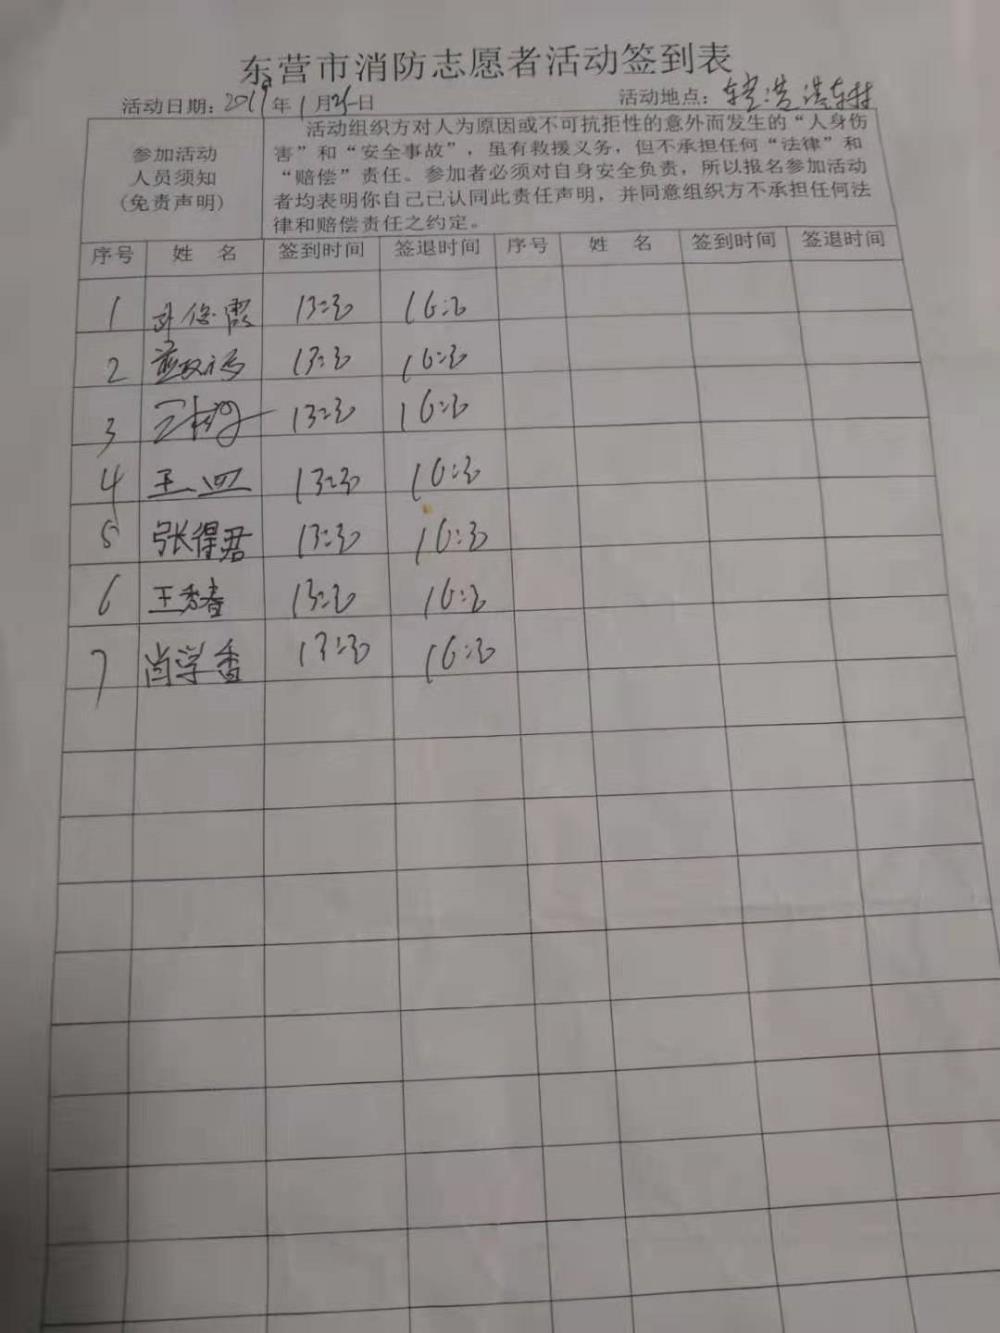 东营市消防志愿者活动签到表
活动日期：2019年1月25日 活动地点：
参加活动
人员须知
(免责声明)
活动组织方对人为原因或不可抗拒性的意外而发生的“人身伤
害”和“安全事故”，虽有救援义务，但不承担任何“法律”和
“赔偿”责任。参加者必须对自身安全负责，所以报名参加活动
者均表明你自己已认同此责任声明，并同意组织方不承担任何法
律和赔偿责任之约定。
序号 姓 名 签到时间 签退时间 序号 姓 名 签到时间 签退时间
1 13:30 16:30
2 13:30 16:30
3 13:30 16:30
4 王四 13:30 16:30
5 张得君 13:30 16:30
6 王秀春 13:30 16:30
7 肖学香 13:30 16:30